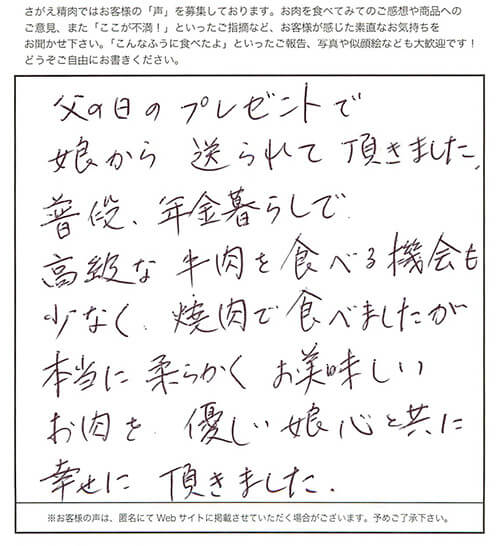 さがえ精肉ではお客様の「声」を募集しております。お肉を食べてみてのご感想や商品への
ご意見、また「ここが不満！」といったご指摘など、お客様が感じた素直なお気持ちを
お聞かせ下さい。「こんなふうに食べたよ」といったご報告、写真や似顔絵なども大歓迎です！
どうぞご自由にお書きください。
父の日のプレゼントで
娘から 送られて 頂きました。
普段、年金暮らしで
高級な 牛肉を食べる機会も
少なく、焼肉で食べましたが
本当に柔らかく お美味しい
お肉を 優しい娘心と共に
幸せに 頂きました.
※お客様の声は、匿名にてWebサイトに掲載させていただく場合がございます。予めご了承下さい。